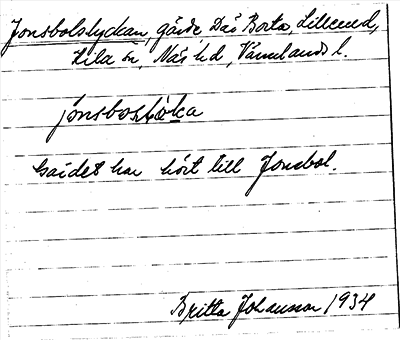 Jonsbolslyckan, gärde Där Borta, Lillerud,
Kila sn, Näs hd, Värmlands l.
jonsboslöka
Gärdet har hört till Jonsbol.
Britta Johansson 1934